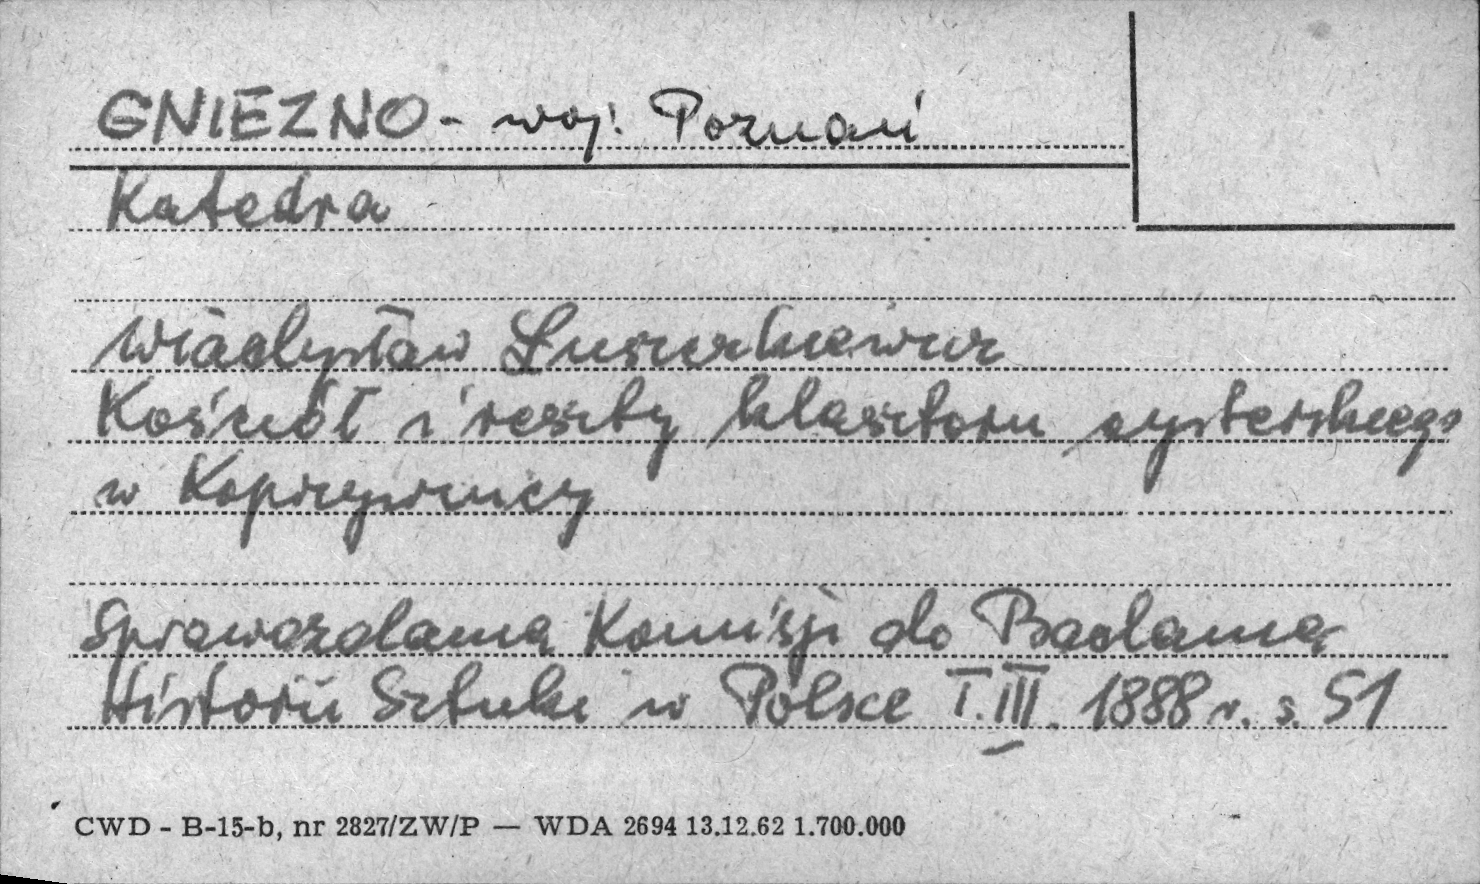 GNIEZNO - woj. Poznań
Katedra
Władysław Łuszczkiewicz
Kościół i reszty klasztoru cysterskiego
w Koprzywnicy
Sprawozdania Komisji do Badania
Historii Sztuki w Polsce T. III. 1888 r. s. 51
CWD - B-15-b, nr 2827/ZW/P — WDA 2694 13.12.62 1.700.000